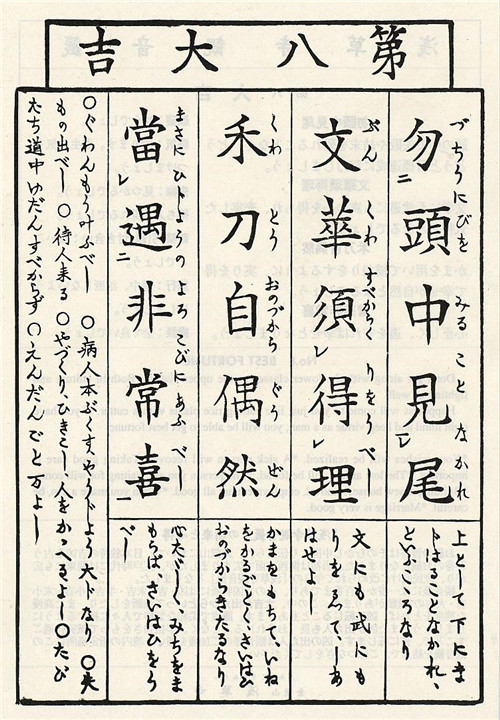 第八大吉
づちうにびを みること なかれ
勿二頭中見レ尾
上として下にま
はることなかれ、
といふこゝろなり
ぶん くわ すべからく りをうべし
文華須レ得レ理
文にも武にも
はせよし
くわ とう おのづから ぐう ぜん
禾刀自偶然
かまをもちて、いね
をかるごとく、さいはひ
おのづからきたるなり
まさに ひじやうの よろこびにあふべし
當遇二非常喜
心たゞしく、みちをま
もらば、さいはひをう
べし
○ぐわんもう叶ふべし ○病人本ぶくす、やうじよう大事なり ○失
もの出べし ○待人来る ○やづくり、ひきこし、人をかゝゆるよし ○たび
たち道中ゆだんすべからず ○えんだんごと万よし